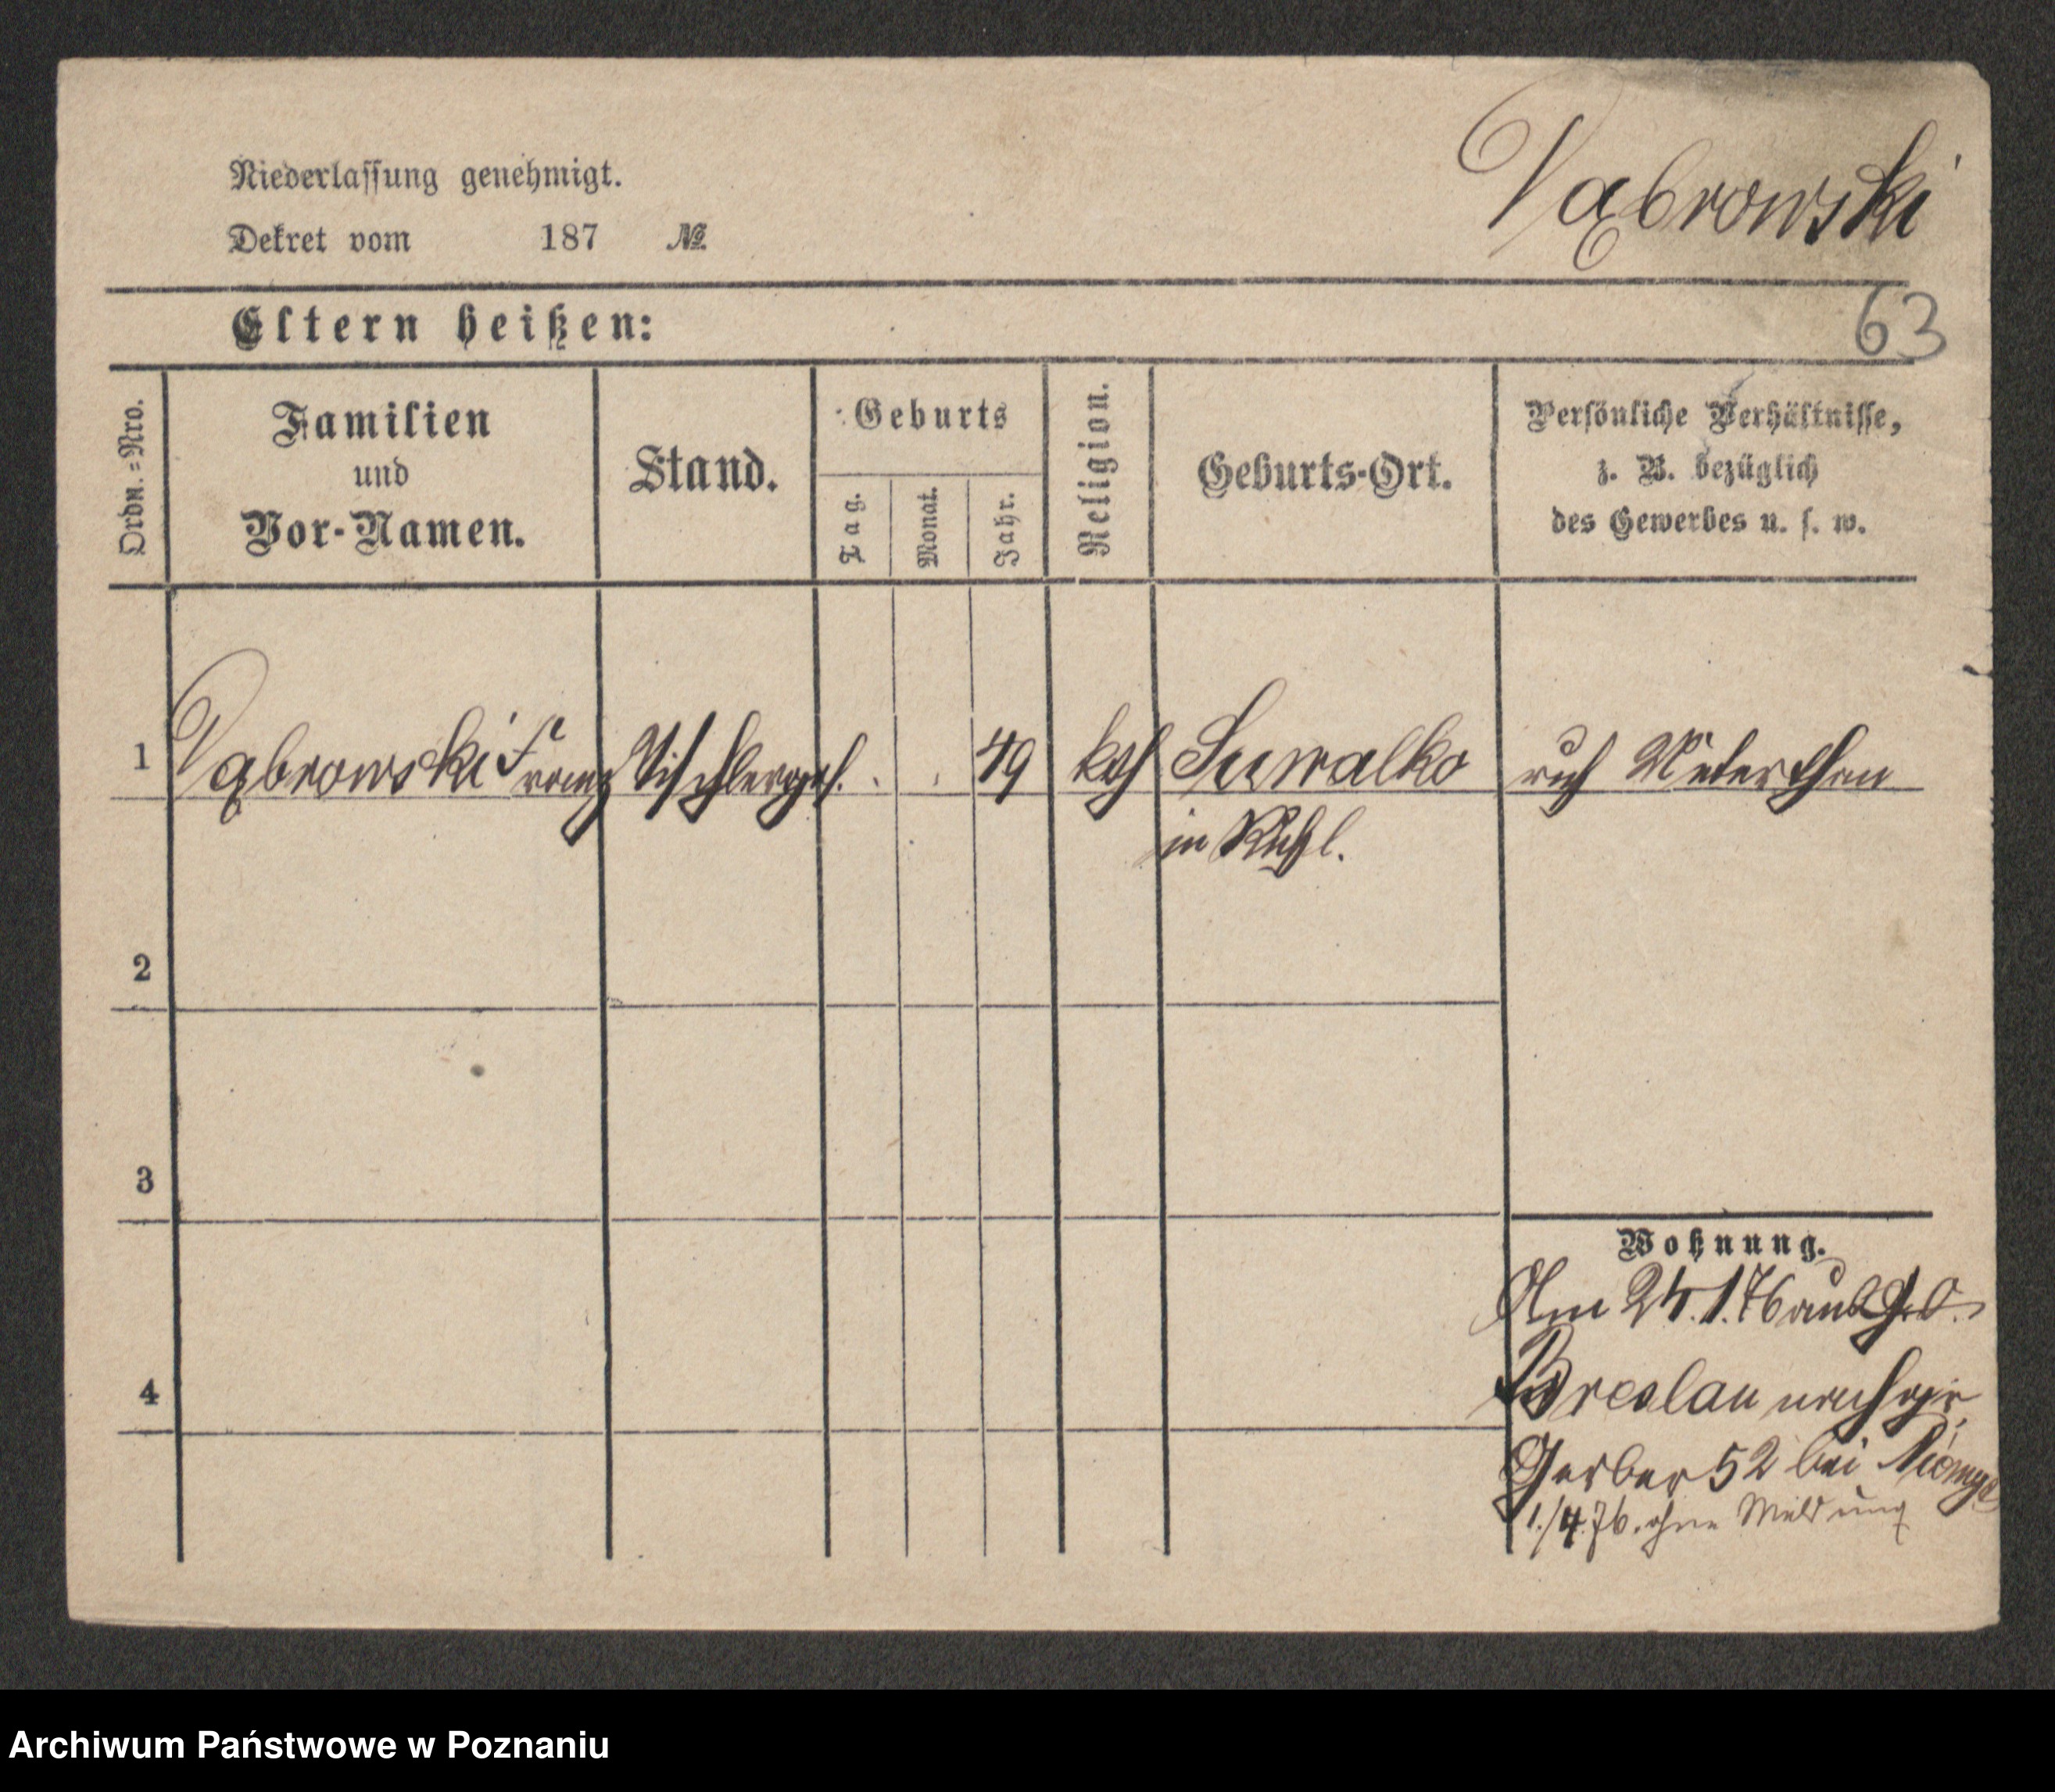 Niederlassung genehmigt.
Dąbrowski
Dekret vom 187 №
Eltern heißen:
63
Ordn.=Nro.
Familien und Vor-Namen.
Stand.
Geburts
Tag.
Monat.
Jahr.
Religion.
Geburts-Ort.
Persönliche Verhältnisse,
z. B. bezüglich
des Gewerbes u. s. w.
1 Dąbrowski Franz Tischlerges. 49 kth Suwalko
in Rußl.
russ Unterthan
2
3
4
Wohnung.
Am 24.1.76 aus
Breslau
Gerber 52 bei
1./4.76. ohne Meldung
Archiwum Państwowe w Poznaniu